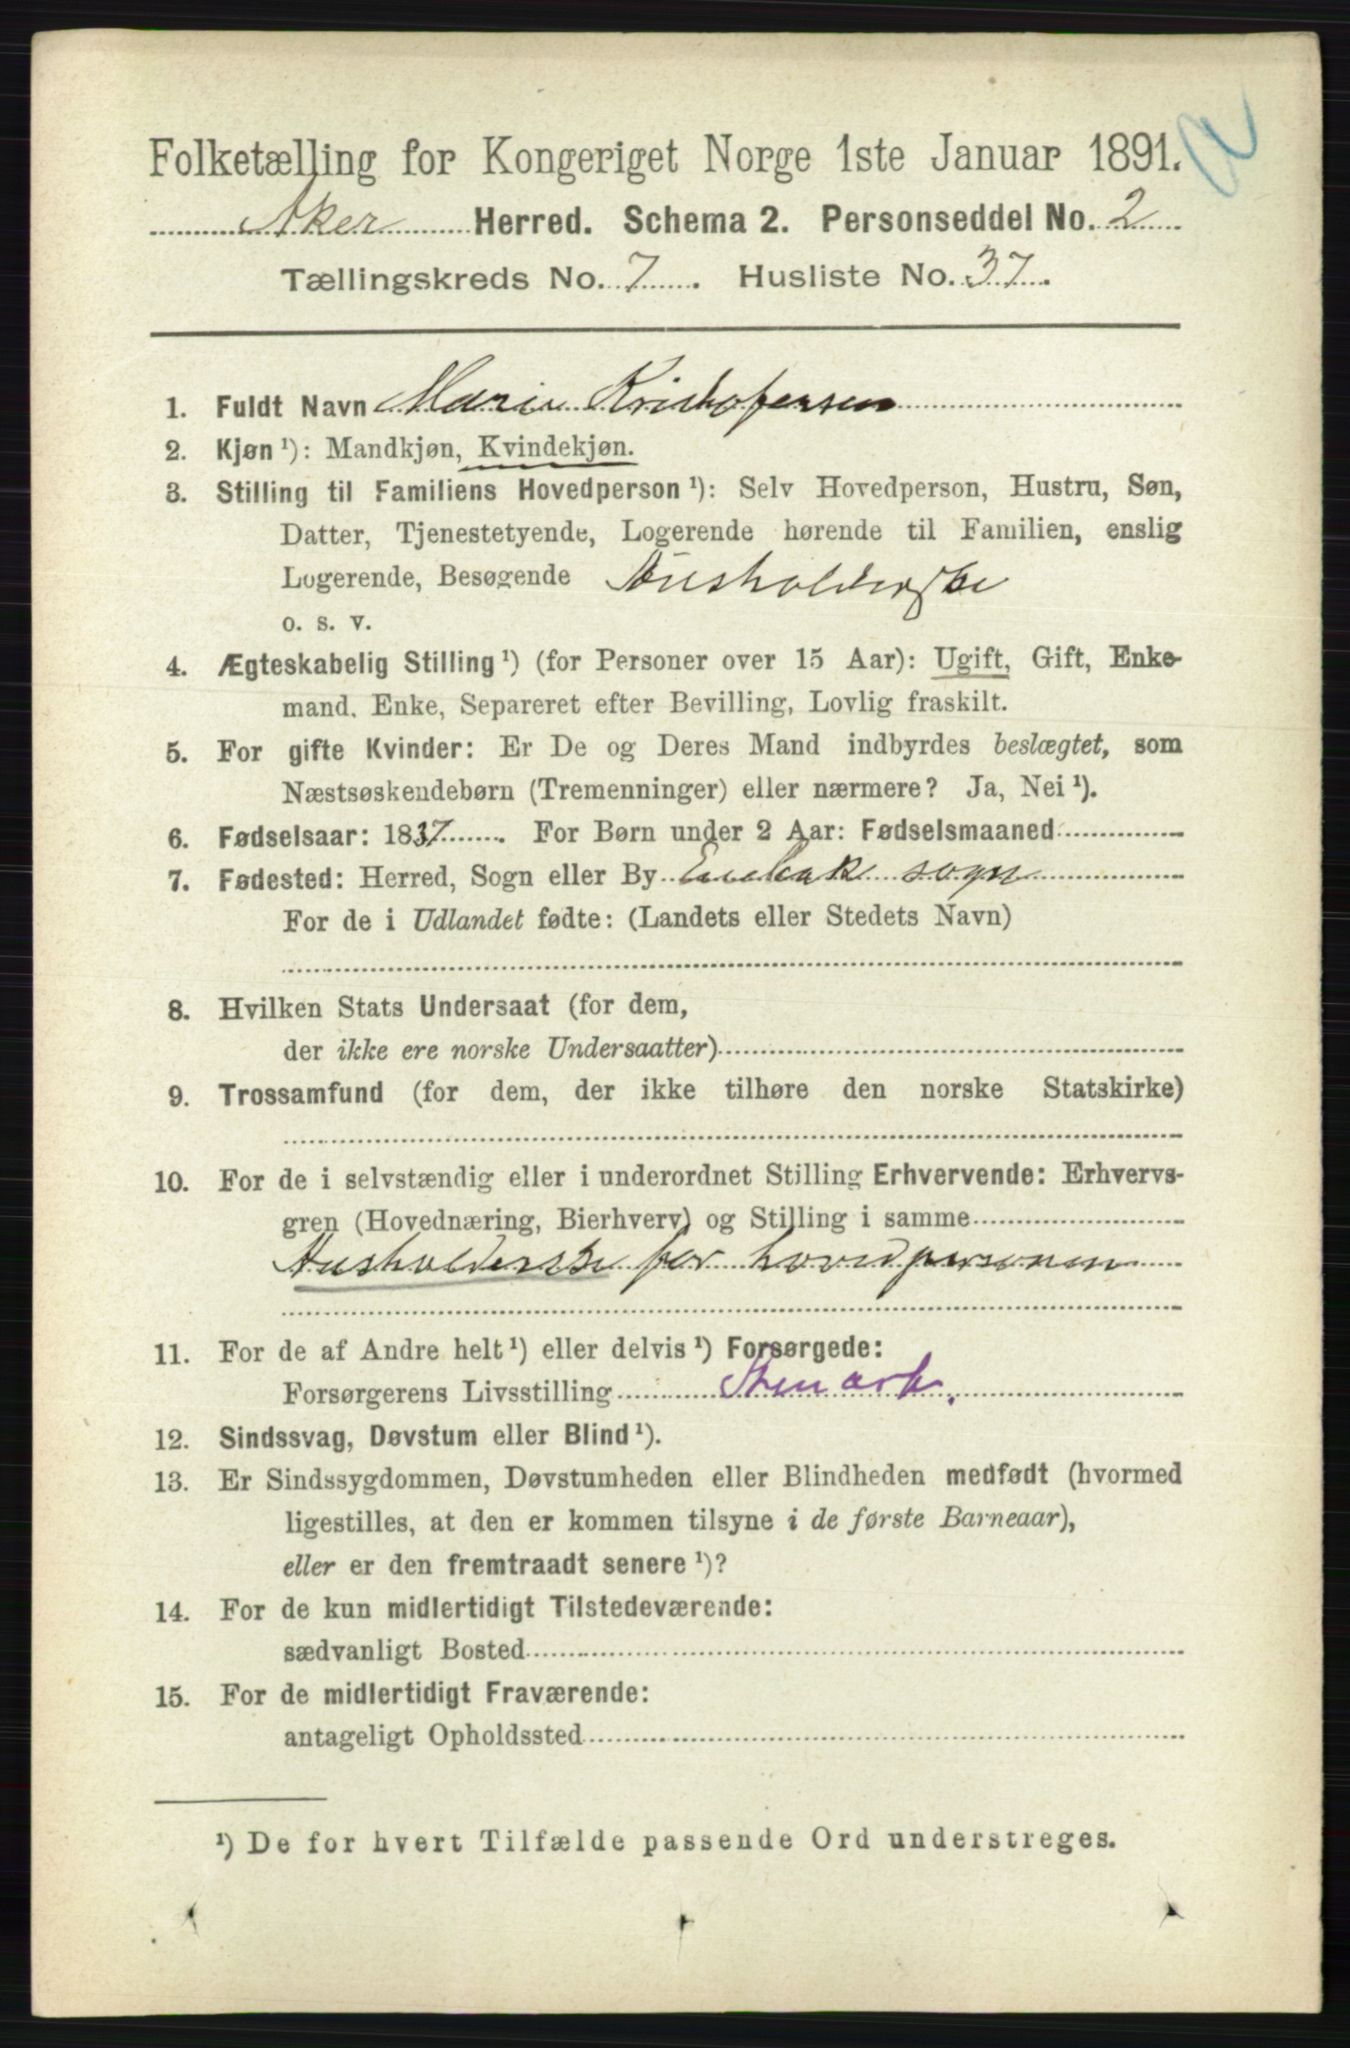 Folketælling for Kongeriget Norge 1ste Januar 1891.
Aker Herred. Schema 2. Personseddel No. 2
Tællingskreds No. 7. Husliste No. 37.
1. Fuldt Navn Marie Kristofersen
2. Kjøn ¹): Mandkjøn, Kvindekjøn.
3. Stilling til Familiens Hovedperson ¹): Selv Hovedperson, Hustru, Søn,
Datter, Tjenestetyende, Logerende hørende til Familien, enslig
Logerende, Besøgende Husholderske
o. s. v.
4. Ægteskabelig Stilling ¹) (for Personer over 15 Aar): Ugift, Gift, Enke-
mand, Enke, Separeret efter Bevilling, Lovlig fraskilt.
5. For gifte Kvinder: Er De og Deres Mand indbyrdes beslægtet, som
Næstsøskendebørn (Tremenninger) eller nærmere? Ja, Nei ¹).
6. Fødselsaar: 1837. For Børn under 2 Aar: Fødselsmaaned
7. Fødested: Herred, Sogn eller By Enebak sogn
For de i Udlandet fødte: (Landets eller Stedets Navn)
8. Hvilken Stats Undersaat (for dem,
der ikke ere norske Undersaatter)
9. Trossamfund (for dem, der ikke tilhøre den norske Statskirke)
10. For de i selvstændig eller i underordnet Stilling Erhvervende: Erhvervs-
gren (Hovednæring, Bierhverv) og Stilling i samme
Husholderske for hovedpersonen
11. For de af Andre helt ¹) eller delvis ¹) Forsørgede:
Forsørgerens Livsstilling Sten arb.
12. Sindssvag, Døvstum eller Blind ¹).
13. Er Sindssygdommen, Døvstumheden eller Blindheden medfødt (hvormed
ligestilles, at den er kommen tilsyne i de første Barneaar),
eller er den fremtraadt senere ¹)?
14. For de kun midlertidigt Tilstedeværende:
sædvanligt Bosted
15. For de midlertidigt Fraværende:
antageligt Opholdssted
¹) De for hvert Tilfælde passende Ord understreges.